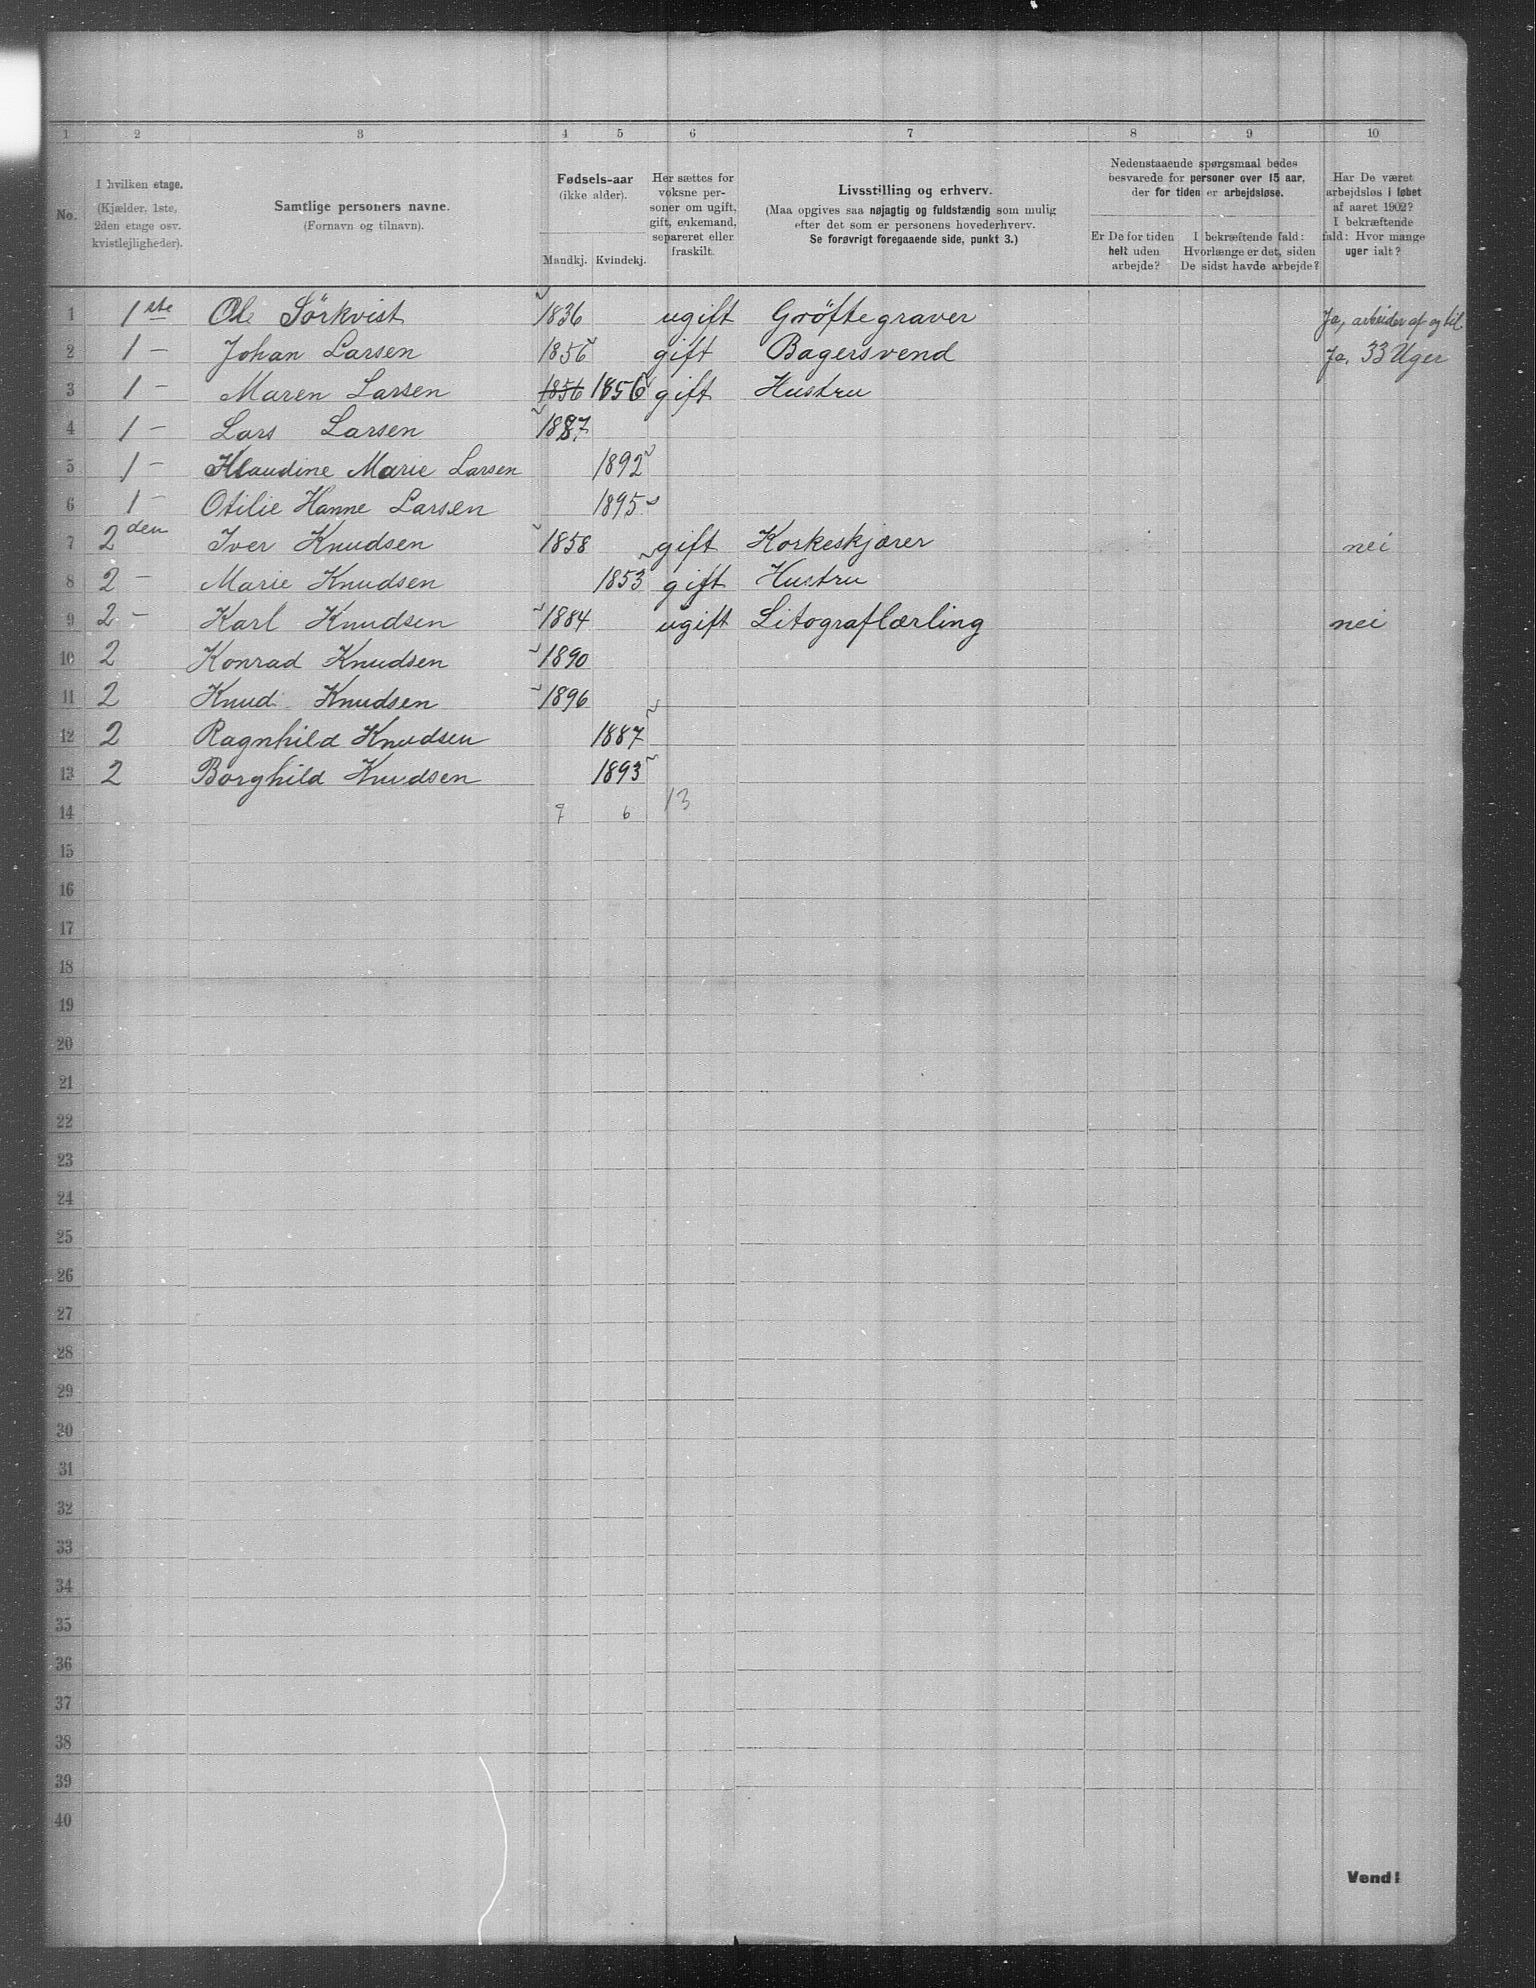 1 2 3 4 5 6 7 8 9 10
No.
I hvilken etage.
(Kjælder, 1ste,
2den etage osv.
kvistlejligheder).
Samtlige personers navne.
(Fornavn og tilnavn).
Fødsels-aar
(ikke alder).
Mandkj. Kvindekj.
Her sættes for
voksne per-
soner om ugift,
gift, enkemand,
separeret eller
fraskilt.
Livsstilling og erhverv.
(Maa opgives saa nøjagtig og fuldstændig som mulig
efter det som er personens hovederhverv.
Se forøvrigt foregaaende side, punkt 3.)
Nedenstaaende spørgsmaal bedes
besvarede for personer over 15 aar,
der for tiden er arbejdsløse.
Er De for tiden
helt uden
arbejde?
I bekræftende fald:
Hvorlænge er det, siden
De sidst havde arbejde?
Har De været
arbejdsløs i løbet
af aaret 1902?
I bekræftende
fald: Hvor mange
uger ialt?
1 1ste Ole Sörkvist 1836 ugift Gröftegraver Ja, arbeider af og til
2 1 — Johan Larsen 1856 gift Bagersvend Ja, 33 Uger
3 1 — Maren Larsen 1856 1856 gift Hustru
4 1 — Lars Larsen 1887
5 1 — Klaudine Marie Larsen 1892
6 1 — Otilie Hanne Larsen 1895
7 2den Iver Knudsen 1858 gift Korkeskjærer nei
8 2 — Marie Knudsen 1853 gift Hustru
9 2 — Karl Knudsen 1884 ugift Litograflærling nei
10 2 Konrad Knudsen 1890
11 2 Knud Knudsen 1896
12 2 Ragnhild Knudsen 1887
13 2 Borghild Knudsen 1893
14 7 6 13
15
16
17
18
19
20
21
22
23
24
25
26
27
28
29
30
31
32
33
34
35
36
37
38
39
40
Vend!